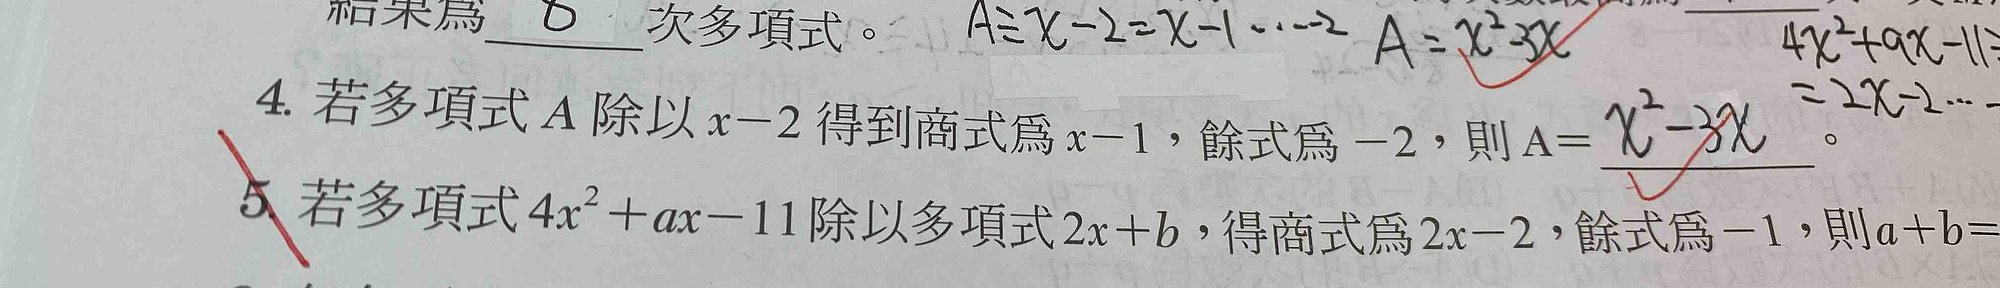 結果為 8 次多項式。 A÷x-2=x-1…-2 A=x²-3x
4x²+ax-11÷
=2x-2…-
4. 若多項式 A 除以 x-2 得到商式為 x-1,餘式為 -2,則 A= x²-3x 。
5. 若多項式 4x²+ax-11 除以多項式 2x+b,得商式為 2x-2,餘式為 -1,則 a+b=